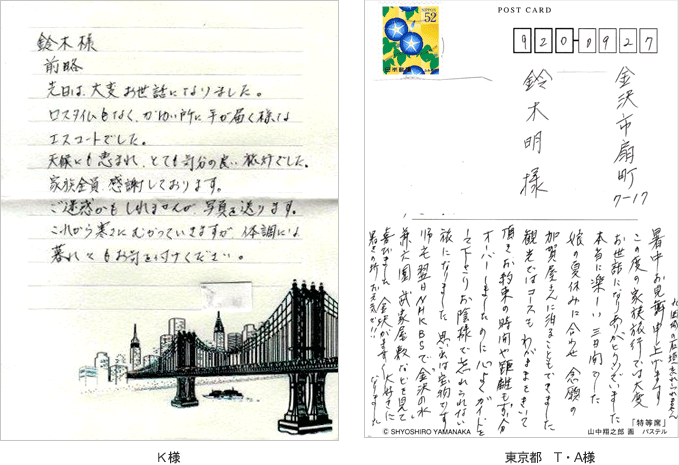 鈴木様
前略
先日は、大変お世話になりました。
ロスタイムもなく、かゆい所に手が届く様な
エスコートでした。
天候にも恵まれ、とても気分の良い旅行でした。
家族全員、感謝しております。
ご迷惑かもしれませんが、写真を送ります。
これから寒さにむかっていきますが、体調には
暮れぐれもお気を付けください。
K様
NIPPON
52
日本郵便
POST CARD
920-0927
金沢市扇町
7-17
鈴木明様
暑中お見舞申し上げます
この度の家族旅行では大変
お世話になりありがとうございました
本当に楽しい三日間でした
娘の夏休みに合わせ念願の
加賀屋さんに泊まることもできました
観光ではコースもわがままをきいて
頂きお約束の時間や距離も
オーバーしましたのに心よくガイドを
して下さりお陰様で忘れられない
旅になりました 思い出は宝物です
帰宅翌日NHKBSで「金沢の水」
兼六園 武家屋敷などを見て
喜びました 金沢がますます大好きに
なりました
「特等席」
© SHYOSHIRO YAMANAKA
山中翔之郎 画 パステル
東京都 T・A様